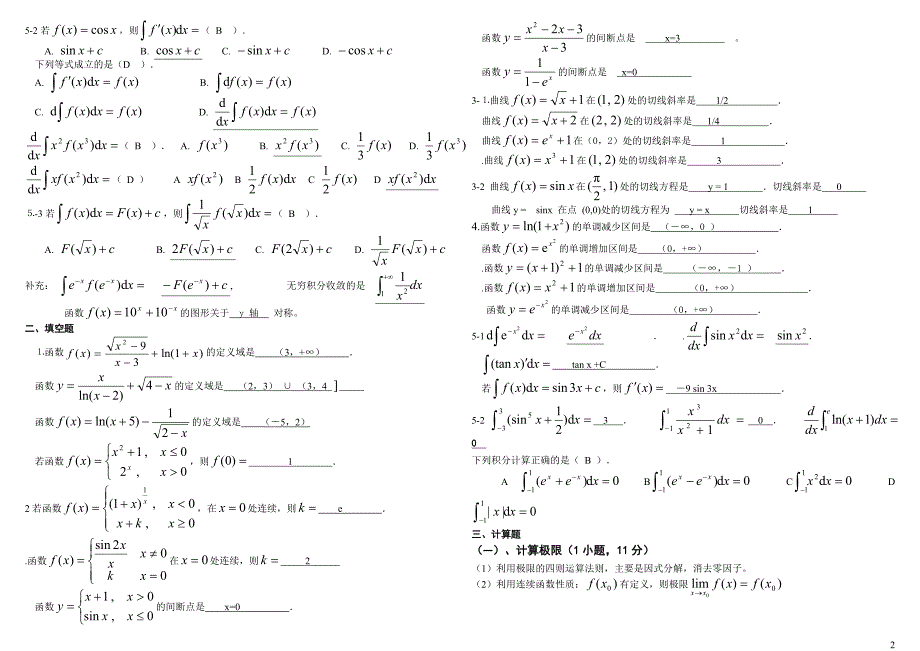 5-2 若 f(x)=cos x，则∫f′(x)dx=（ B ）．
A. sin x+c B. cos x+c C. −sin x+c D. −cos x+c
下列等式成立的是（D ）．
A. ∫f′(x)dx=f(x) B. ∫df(x)=f(x)
C. d∫f(x)dx=f(x) D. d/dx ∫f(x)dx=f(x)
d/dx ∫x²f(x³)dx=（ B ）． A. f(x³) B. x²f(x³) C. 1/3 f(x) D. 1/3 f(x³)
d/dx ∫xf(x²)dx=（ D ） A xf(x²) B 1/2 f(x)dx C 1/2 f(x) D xf(x²)dx
5.-3 若∫f(x)dx=F(x)+c，则∫1/√x f(√x)dx=（ B ）．
A. F(√x)+c B. 2F(√x)+c C. F(2√x)+c D. 1/√x F(√x)+c
补充： ∫e⁻ˣf(e⁻ˣ)dx= −F(e⁻ˣ)+c， 无穷积分收敛的是 ∫₁^{+∞} 1/x² dx
函数 f(x)=10ˣ+10⁻ˣ 的图形关于 y 轴 对称．
二、填空题
1.函数 f(x)=√(x²−9)/(x−3)+ln(1+x) 的定义域是 （3，+∞）．
函数 y=x/ln(x−2)+√(4−x) 的定义域是 （2，3）∪（3，4 ]
函数 f(x)=ln(x+5)−1/√(2−x) 的定义域是 （−5，2）
若函数 f(x)={x²+1, x≤0; 2ˣ, x>0，则 f(0)= 1 ．
2 若函数 f(x)={(1+x)^{1/x}, x<0; x+k, x≥0，在 x=0 处连续，则 k= e ．
.函数 f(x)={sin 2x/x x≠0; k x=0 在 x=0 处连续，则 k= 2
函数 y={x+1, x>0; sin x, x≤0 的间断点是 x=0 ．
函数 y=(x²−2x−3)/(x−3) 的间断点是 x=3 。
函数 y=1/(1−eˣ) 的间断点是 x=0
3- 1.曲线 f(x)=√x+1 在 (1, 2) 处的切线斜率是 1/2 ．
曲线 f(x)=√(x+2) 在 (2, 2) 处的切线斜率是 1/4 ．
曲线 f(x)=eˣ+1 在（0，2）处的切线斜率是 1 ．
.曲线 f(x)=x³+1 在 (1, 2) 处的切线斜率是 3 ．
3-2 曲线 f(x)=sin x 在 (π/2, 1) 处的切线方程是 y = 1 ．切线斜率是 0
曲线 y = sinx 在点 (0,0)处的切线方程为 y = x 切线斜率是 1
4.函数 y=ln(1+x²) 的单调减少区间是 （−∞，0 ） ．
函数 f(x)=e^{x²} 的单调增加区间是 （0，+∞） ．
.函数 y=(x+1)²+1 的单调减少区间是 （−∞，−1 ） ．
.函数 f(x)=x²+1 的单调增加区间是 （0，+∞） ．
函数 y=e^{−x²} 的单调减少区间是 （0，+∞） ．
5-1 d∫e^{−x²}dx= e^{−x²}dx ． .d/dx ∫sin x²dx= sin x² ．
∫(tan x)′dx= tan x +C ．
若∫f(x)dx=sin 3x+c，则 f′(x)= −9 sin 3x ．
5-2 ∫₋₃³(sin⁵x+1/2)dx= 3 ． ∫₋₁¹ x³/(x²+1) dx= 0 ． d/dx ∫₁ᵉ ln(x+1)dx=
0
下列积分计算正确的是（ B ）．
A ∫₋₁¹(eˣ+e⁻ˣ)dx=0 B ∫₋₁¹(eˣ−e⁻ˣ)dx=0 C ∫₋₁¹x²dx=0 D
∫₋₁¹|x|dx=0
三、计算题
（一）、计算极限（1 小题，11 分）
（1）利用极限的四则运算法则，主要是因式分解，消去零因子。
（2）利用连续函数性质：f(x₀) 有定义，则极限 lim_{x→x₀} f(x)=f(x₀)
2